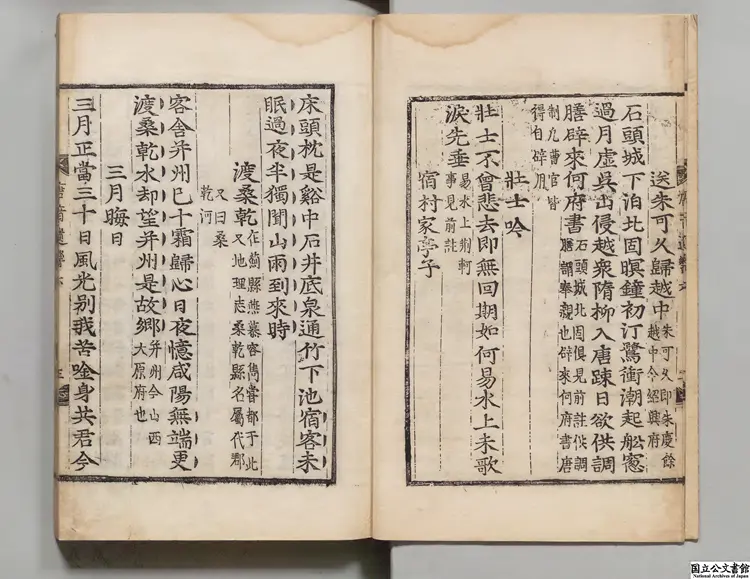 送朱可久歸越中 朱可久即朱慶餘
越中今紹興府
石頭城下泊北固暝鐘初汀鷺衝潮起舩窓
過月虛吳山侵越衆隋柳入唐踈日欲供調
膳辟來何府書 石頭城北固俱見前註供調
膳謂奉親也辟來何府書唐
制九曹官皆
得自辟用
壯士吟
壯士不曾悲去即無回期如何易水上未歌
淚先垂 易水上荆軻
事見前註
宿村家亭子
床頭枕是谿中石井底泉通竹下池宿客未
眠過夜半獨聞山雨到來時
渡桑乾 在薊縣燕慕容雋嘗都于此
又地理志桑乾縣名屬代郡
又曰桑
乾河
客舍并州已十霜歸心日夜憶咸陽無端更
渡桑乾水却望并州是故鄉 并州今山西
大原府也
三月晦日
三月正當三十日風光别我苦唫身共君今
唐音遺響
国立公文書館
National Archives of Japan